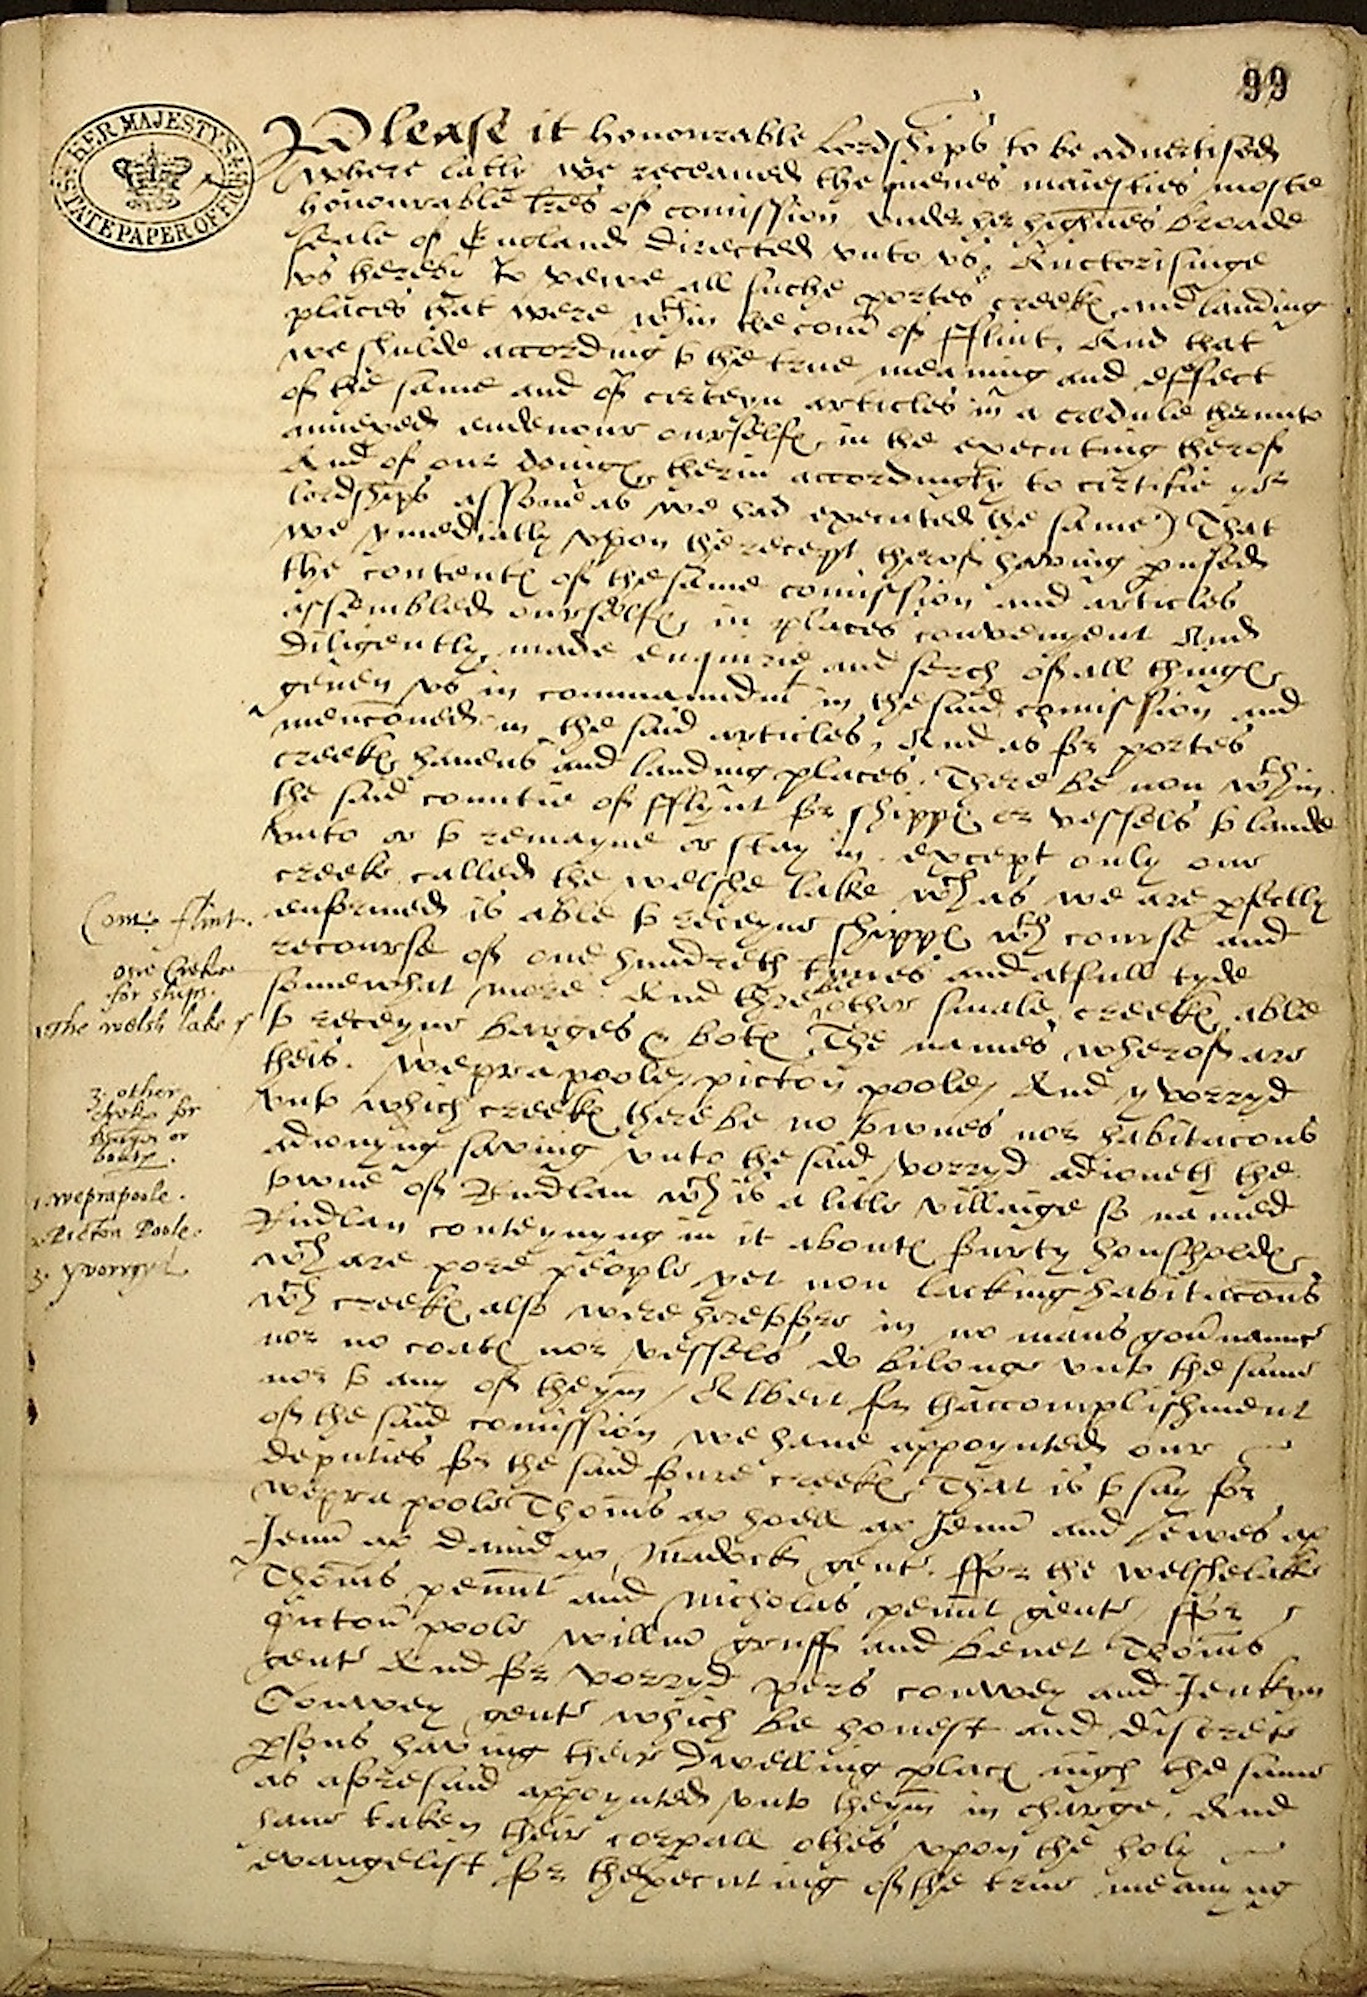 99
HER MAJESTY'S STATE PAPER OFFICE
Please it honourable Lordships to be aduertised
where lately we receaued the quenes maiesties moste
honourable lres of comission vnder her highnes broade
seale of England directed vnto vs, Auctorisinge
vs hereby to vewe all suche portes creekes and landing
places that were wthin the coun of fflint, And that
we shulde according to the true meaning and effect
of the same and of certeyn articles in a cedule therunto
annexed endeuour ourselfes in the executing therof
And of our doinges therin accordingly to certifie yor
lordships assone as we had executed the same) That
we ymediatly vpon the recept therof having pused
the contentes of the same comission and articles
assembled ourselfes in places convenyent And
diligently made enquirie and serch of all thinges
geuen vs in commaundmt in the said comission and
menconed in the said articles, And as for portes
creekes hauens and landing places. There be non wthin
the said countie of fflynt for shippes or vessels to lande
vnto or to remayne or stay in. except only one
creeke called the welshe lake wch as we are pfectly
enformed is able to receyue shippes wth course and
recourse of one hundreth tunes and at full tyde
somewhat more. And thre be other smale creekes able
to receyue barges & botes The names wherof are
theis. Wepra poole, picton poole, And y vorryd
vnto which creekes there be no townes nor habitacons
adioynyng saving vnto the said vorryd adioneth the
towne of Rudlan wch is a litle villaige so named
Rudlan conteynyng in it aboutes fourty housholdes
wch are pore people yet non lacking habitacons
wch creekes also were heretofore in no mans gounaunce
nor no coates nor vessels do bilonge vnto the same
nor to any of theym, Albeit for thaccomplishment
of the said comission we haue appoynted our
deputies for the said foure creekes That is to say for
wepra poole Thoms ap hoell ap Jeun and Lewes ap
Jeun ap Dauid ap Madock gent. ffor the welshe lake
Thoms pennt and Nicholas pennt gent, ffor
Picton poole willm gruff and Benet Thoms
gent And for vorryd pers conwey and Jenkyn
Conwey gent which be honest and discrete
psons having their dwelling places nigh the same
as aforesaid appoynted vnto theym in charge. And
haue taken their corpall othes vpon the holy
evangelist for thexecuting of the true meanyng
Com. flint.
one Creke
for ships.
1. The welsh lake
3. other
Creks for
barges or
boates.
1. weprapoole.
2. Picton Poole.
3. yvorryd